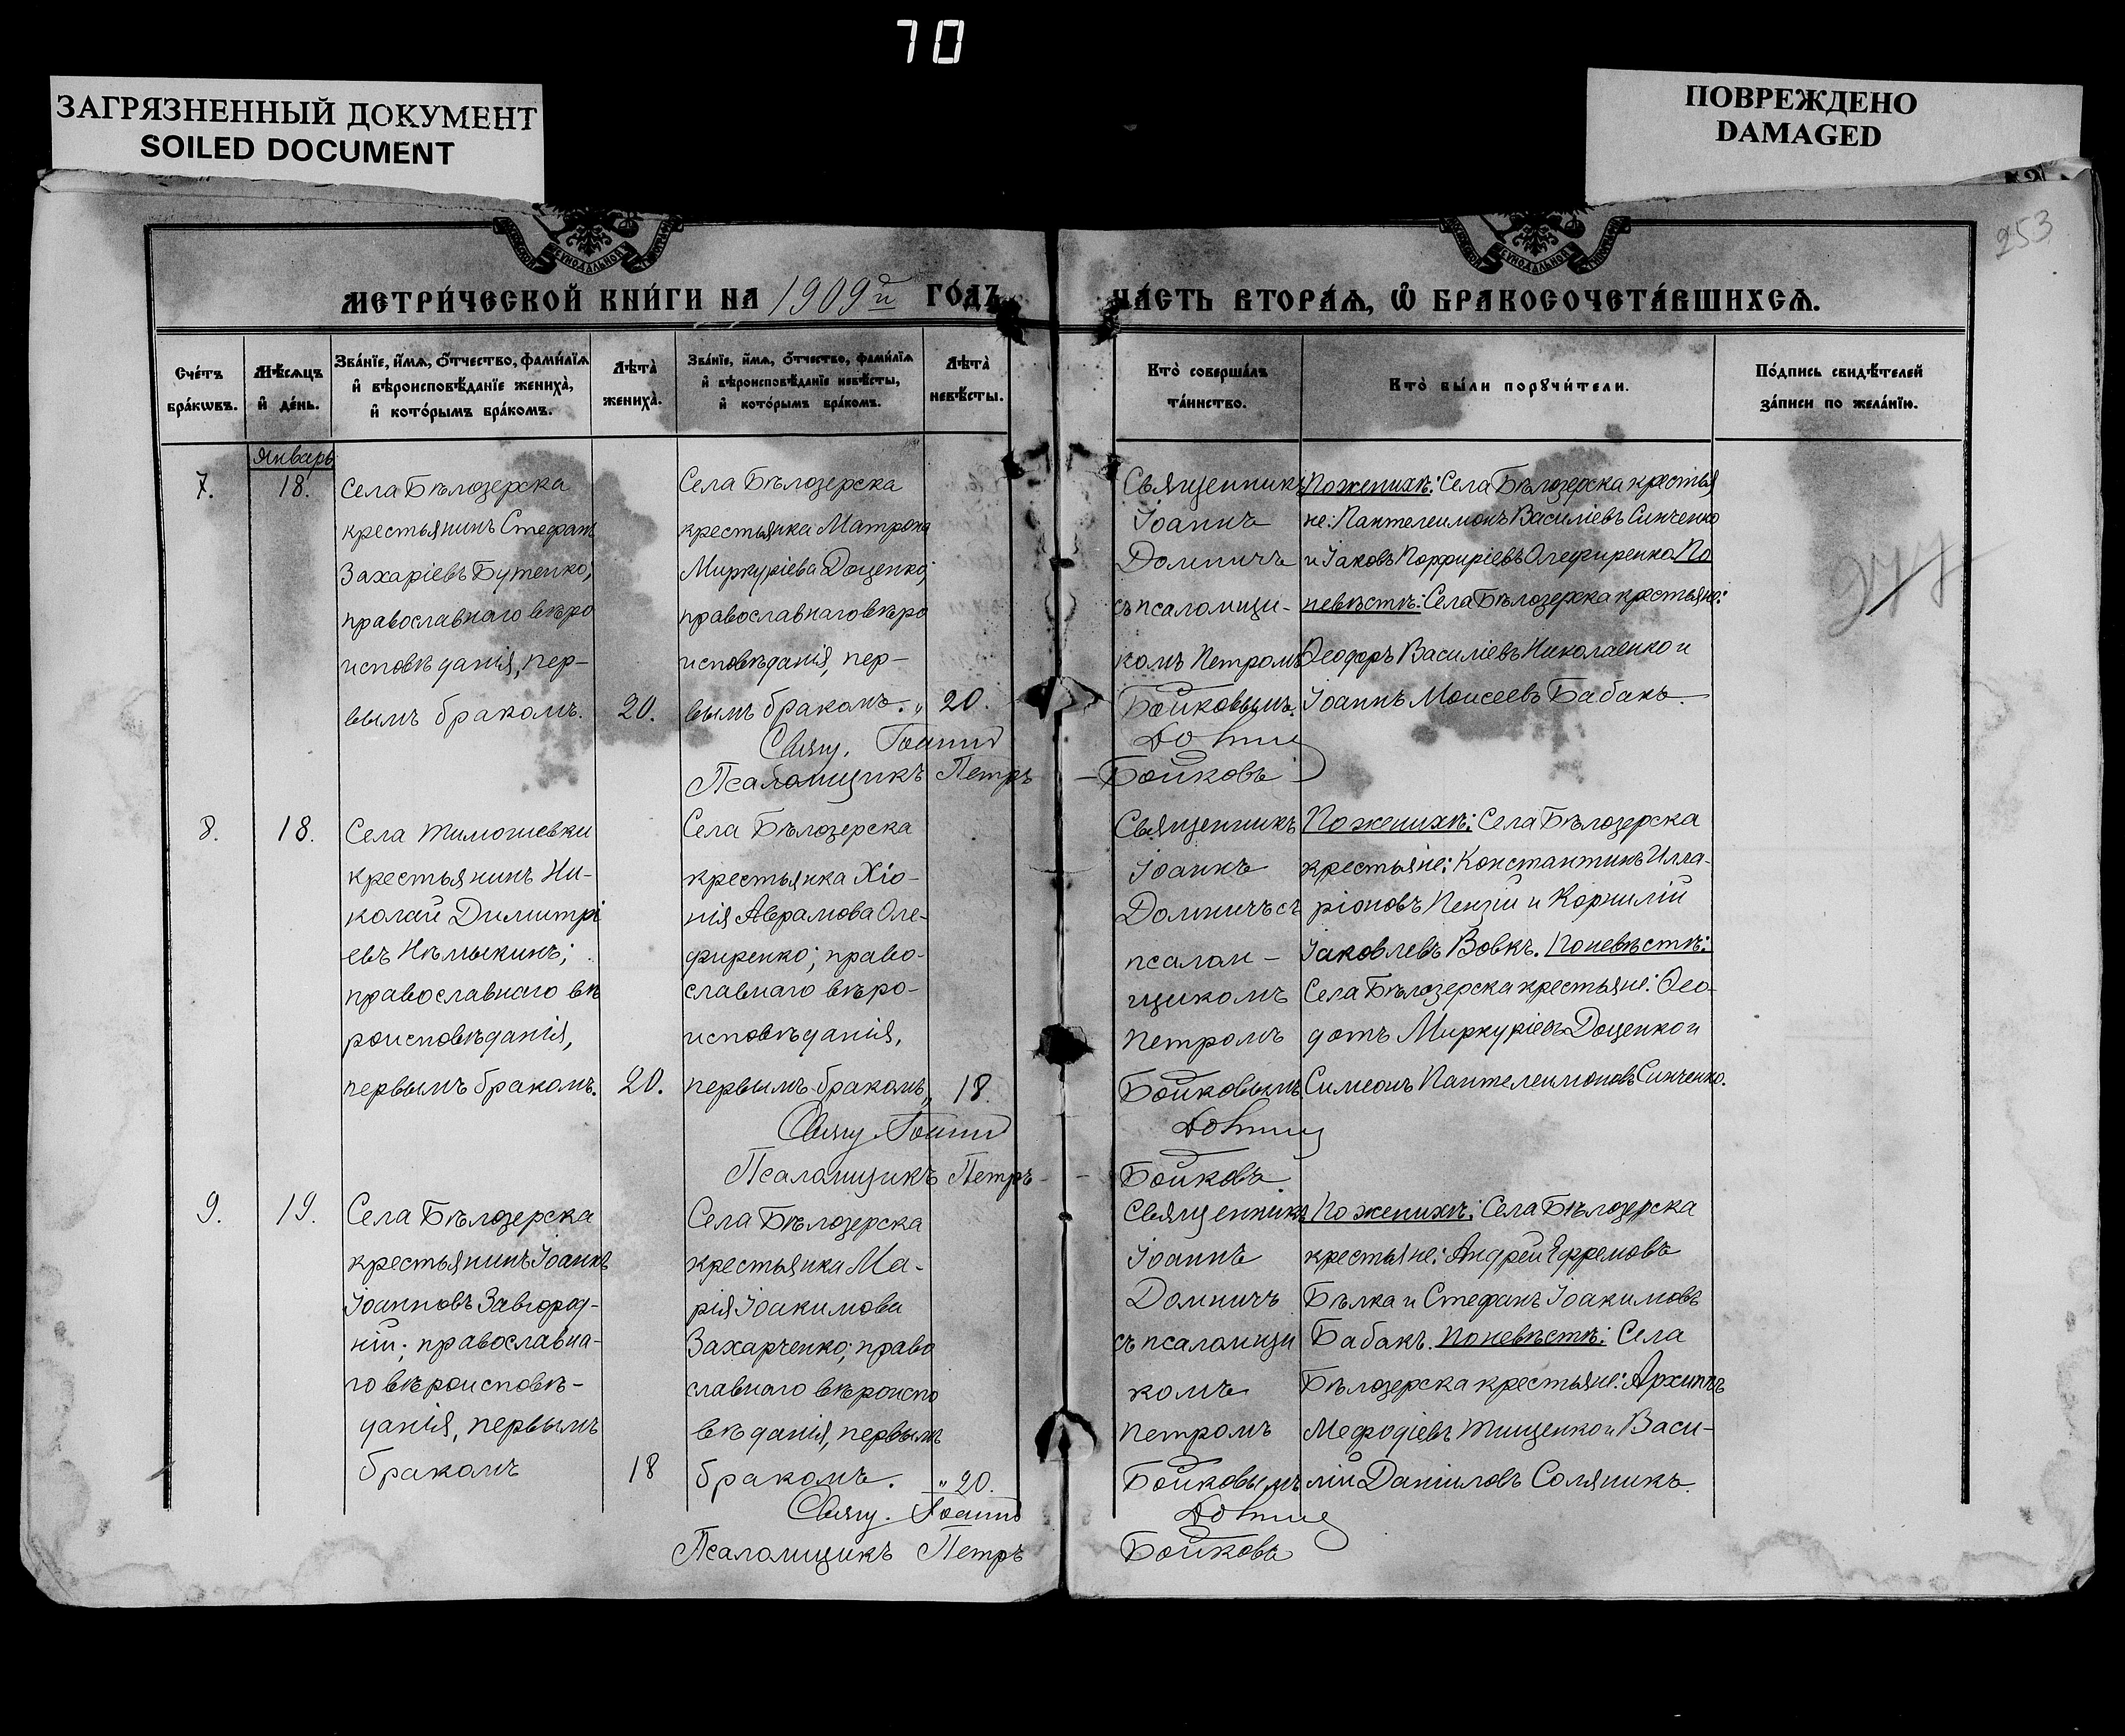 70
ЗАГРЯЗНЕННЫЙ ДОКУМЕНТ
SOILED DOCUMENT
ПОВРЕЖДЕНО
DAMAGED
253
МЕТРИ́ЧЕСКОЙ КНИ́ГИ НА 1909й ГО́ДЪ
ЧА́СТЬ ВТОРА́Ѧ, Ѽ БРАКОСОЧЕТА́ВШИХСѦ.
Сче́тъ
бра́кѡвъ.
Мѣ́сяцъ
и҆ де́нь.
Зва́нїе, и҆́мѧ, ѻ҆́тчество, фами́лїѧ
и҆ вѣроисповѣ́данїе жениха̀,
и҆ кото́рымъ бра́комъ.
Лѣта̀
жениха̀.
Зва́нїе, и҆́мѧ, ѻ҆́тчество, фами́лїѧ
и҆ вѣроисповѣ́данїе невѣ́сты,
и҆ кото́рымъ бра́комъ.
Лѣта̀
невѣ́сты.
Кто̀ соверша́лъ
та́инство.
Кто̀ бы́ли порꙋчи́тели.
По́дпись свидѣ́телей
за́писи по жела́нїю.
Январь
7.
18.
Села Бѣлозерска
крестьянинъ Стефанъ
Захаріевъ Бутенко;
православнаго вѣро
исповѣданія, пер-
вымъ бракомъ.
20.
Села Бѣлозерска
крестьянка Матрона
Миркуріева Доценко;
православнаго вѣро
исповѣданія, пер-
вымъ бракомъ. „
20.
Священникъ
Іоаннъ
Домничъ
съ псаломщи-
комъ Петромъ
Бойковымъ.
По женихѣ: Села Бѣлозерска крестья
не: Пантелеимонъ Василіевъ Синченко
и Іаковъ Порфиріевъ Олефиренко По
невѣстѣ: Села Бѣлозерска крестьяне:
Ѳеодоръ Василіевъ Николаенко и
Іоаннъ Моисеевъ Бабакъ.
277
Свящ. Іоаннъ Домнич
Псаломщикъ Петръ - Бойковъ
8.
18.
Села Тимошевки
крестьянинъ Ни-
колай Димитрі
евъ Нѣмыкинъ;
православнаго вѣ
роисповѣданія,
первымъ бракомъ.
20.
Села Бѣлозерска
крестьянка Хіо-
нія Аврамова Оле-
фиренко; право-
славнаго вѣро-
исповѣданія,
первымъ бракомъ „
18.
Священникъ
Іоаннъ
Домничъ съ
псалом-
щикомъ
Петромъ
Бойковымъ.
По женихѣ: Села Бѣлозерска
крестьяне: Константинъ Илла-
ріоновъ Пензій и Корнилій
Іаковлевъ Вовкъ. По невѣстѣ:
Села Бѣлозерска крестьяне: Ѳео-
дотъ Миркуріевъ Доценко и
Симеонъ Пантелеимоновъ Синченко.
Свящ. Іоаннъ Домнич
Псаломщикъ Петръ - Бойковъ.
9.
19.
Села Бѣлозерска
крестьянинъ Іоаннъ
Іоанновъ Завгород-
ній; православна-
го вѣроисповѣ-
данія, первымъ
бракомъ
18
Села Бѣлозерска
крестьянка Ма-
рія Іоакимова
Захарченко; право
славнаго вѣроиспо
вѣданія, первымъ
бракомъ. „
20.
Священникъ
Іоаннъ
Домничъ
съ псаломщи
комъ
Петромъ
Бойковымъ
По женихѣ: Села Бѣлозерска
крестьяне: Андрей Ефремовъ
Бѣлка и Стефанъ Іоакимовъ
Бабакъ. По невѣстѣ: Села
Бѣлозерска крестьяне: Архиппъ
Мефодіевъ Тищенко и Васи-
лій Даніиловъ Соляникъ.
Свящ. Іоаннъ Домнич
Псаломщикъ Петръ Бойковъ